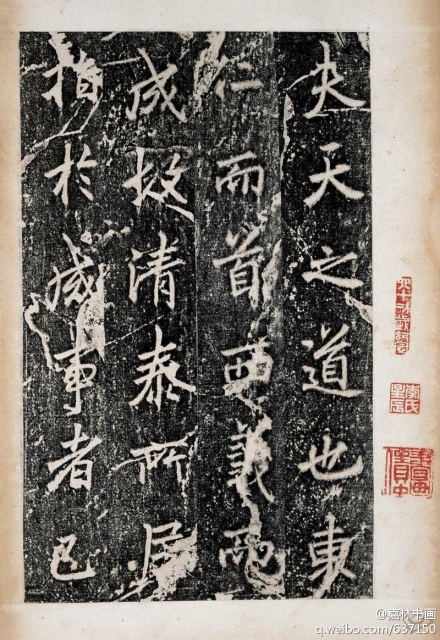 夫天之道也東
仁而首西義而
成故清泰所居
指於成事者已
林书画
q.weibo.com/637150